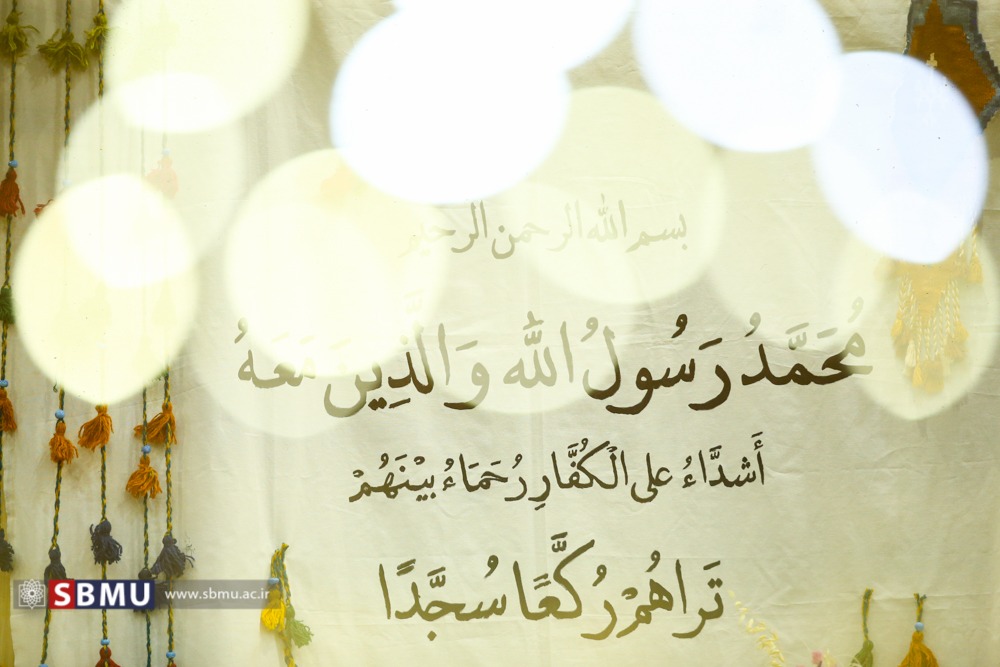 بسم الله الرحمن الرحيم
مُحَمَّدُ رَسُولُ الله وَالَّذِينَ مَعَهُ
أَشدَّاءُ على الْكُفَّارِ رُحَمَاءُ بيْنَهُمْ
تَراهُمْ رُكَّعًا سُجَّدًا
SBMU www.sbmu.ac.ir